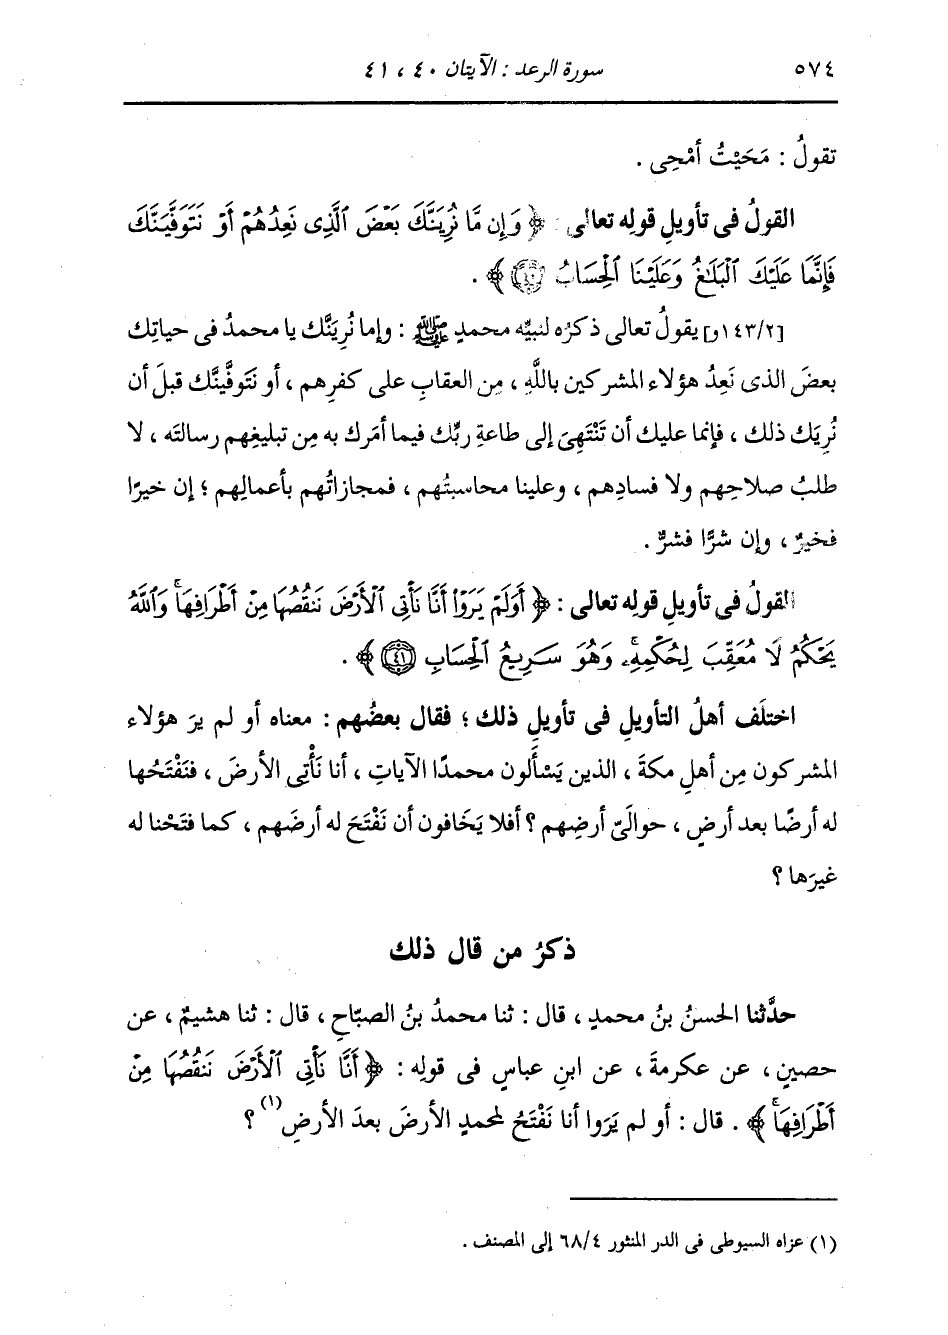 ٥٧٤ سورة الرعد : الآيتان ٤٠ ، ٤١
تقولُ : مَحَيْتُ أمْحِى .
القولُ فى تأويلِ قولِه تعالى : ﴿ وَإِن مَّا نُرِيَنَّكَ بَعْضَ ٱلَّذِى نَعِدُهُمْ أَوْ نَتَوَفَّيَنَّكَ
فَإِنَّمَا عَلَيْكَ ٱلْبَلَٰغُ وَعَلَيْنَا ٱلْحِسَابُ ﴿٤٠﴾ ﴾ .
[١٤٣/٢و] يقولُ تعالى ذكرُه لنبيِّه محمدٍ ﷺ : وإما نُرِيَنَّك يا محمدُ فى حياتِك
بعضَ الذى نَعِدُ هؤلاء المشركين باللَّهِ ، مِن العقابِ على كفرِهم ، أو نَتَوفَّينَّك قبلَ أن
نُرِيَك ذلك ، فإنما عليك أن تَنْتَهِىَ إلى طاعةِ ربِّك فيما أمَرك به مِن تبليغِهم رسالتَه ، لا
طلبُ صلاحِهم ولا فسادِهم ، وعلينا محاسبتُهم ، فمجازاتُهم بأعمالِهم ؛ إن خيرًا
فخيرٌ ، وإن شرًّا فشرٌّ .
القولُ فى تأويلِ قولِه تعالى : ﴿ أَوَلَمْ يَرَوْا۟ أَنَّا نَأْتِى ٱلْأَرْضَ نَنقُصُهَا مِنْ أَطْرَافِهَا ۚ وَٱللَّهُ
يَحْكُمُ لَا مُعَقِّبَ لِحُكْمِهِۦ ۚ وَهُوَ سَرِيعُ ٱلْحِسَابِ ﴿٤١﴾ ﴾ .
اختلَف أهلُ التأويلِ فى تأويلِ ذلك ؛ فقال بعضُهم : معناه أو لم يرَ هؤلاء
المشركون مِن أهلِ مكةَ ، الذين يَسْألون محمدًا الآياتِ ، أنا نَأْتِى الأرضَ ، فنَفْتَحُها
له أرضًا بعد أرضٍ ، حوالَىْ أرضِهم ؟ أفلا يَخَافون أن نَفْتَحَ له أرضَهم ، كما فتَحْنا له
غيرَها ؟
ذكرُ من قال ذلك
حدَّثنا الحسنُ بنُ محمدٍ ، قال : ثنا محمدُ بنُ الصبّاحِ ، قال : ثنا هشيمٌ ، عن
حصينٍ ، عن عكرمةَ ، عن ابنِ عباسٍ فى قولِه : ﴿ أَنَّا نَأْتِى ٱلْأَرْضَ نَنقُصُهَا مِنْ
أَطْرَافِهَا ۚ ﴾ . قال : أو لم يَرَوا أنا نَفْتَحُ لمحمدٍ الأرضَ بعدَ الأرضِ (١) ؟
(١) عزاه السيوطى فى الدر المنثور ٦٨/٤ إلى المصنف .